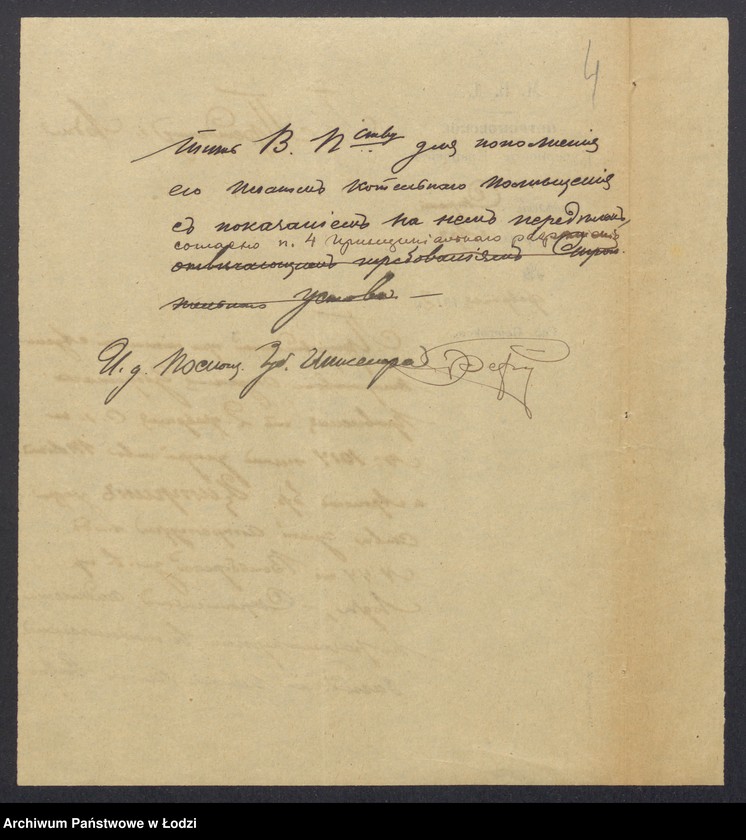 4
тить В. П ству для пополненія
его планомъ котельнаго помѣщенія
съ показаніемъ на немъ передѣлокъ,
согласно п. 4 принципіальнаго разрѣшенія
отвѣчающимъ требованіямъ Строи
тельнаго Устава. —
И. д. Помощ. Губ. Инженера
Archiwum Państwowe w Łodzi